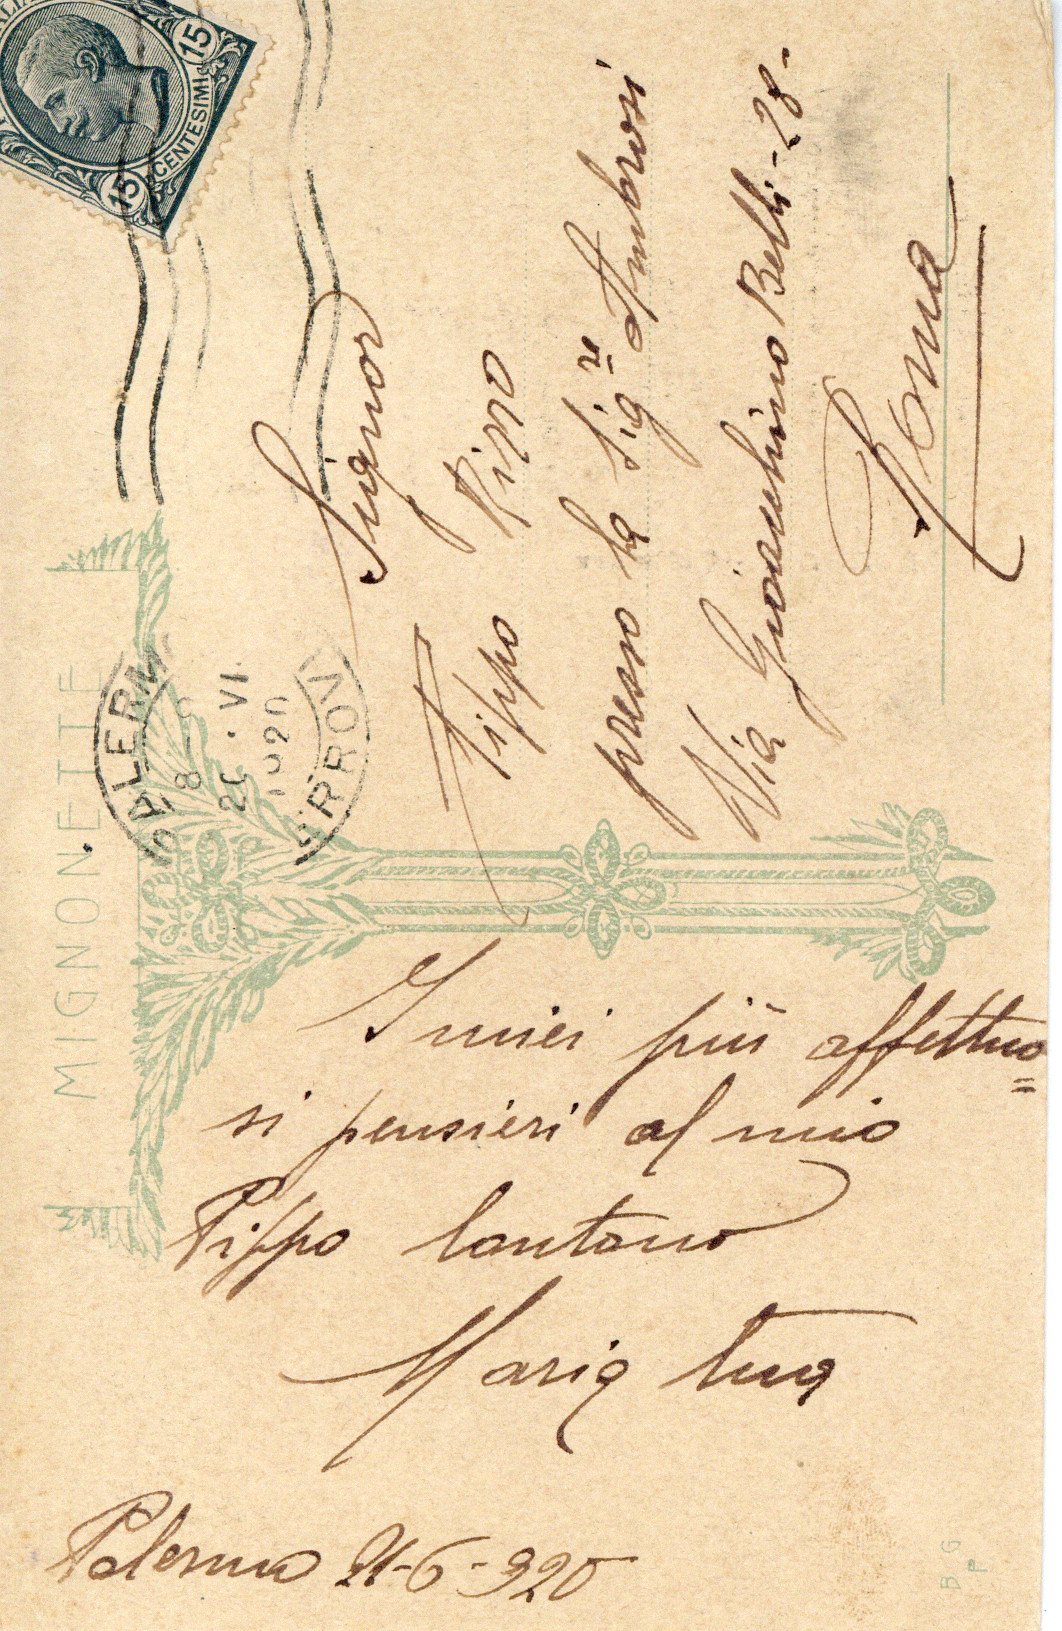 15
15
CENTESIMI
MIGNONETTE
PALERM
8
VI
1920
FERROV
Signor
Pippo Rizzo
presso la Sig.re Ambrosi
Via Gioacchino Belli - 28 -
Roma
I miei più affettuo=
si pensieri al mio
Pippo lontano
Maria tua
Palermo 21-6-920
B G
P